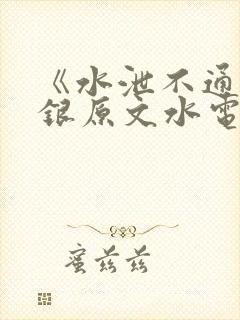 《水泄不通
银原文水电
蜜兹兹